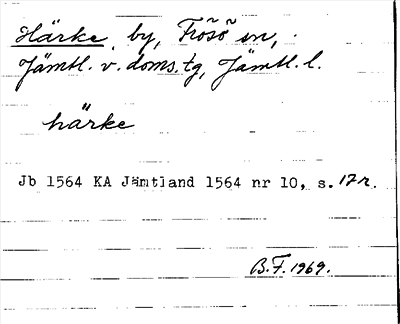 Härke, by, Frösö sn,
Jämtl. v. doms. tg, Jämtl. l.
härke
Jb 1564 KA Jämtland 1564 nr 10, s. 17r.
B.F. 1969.